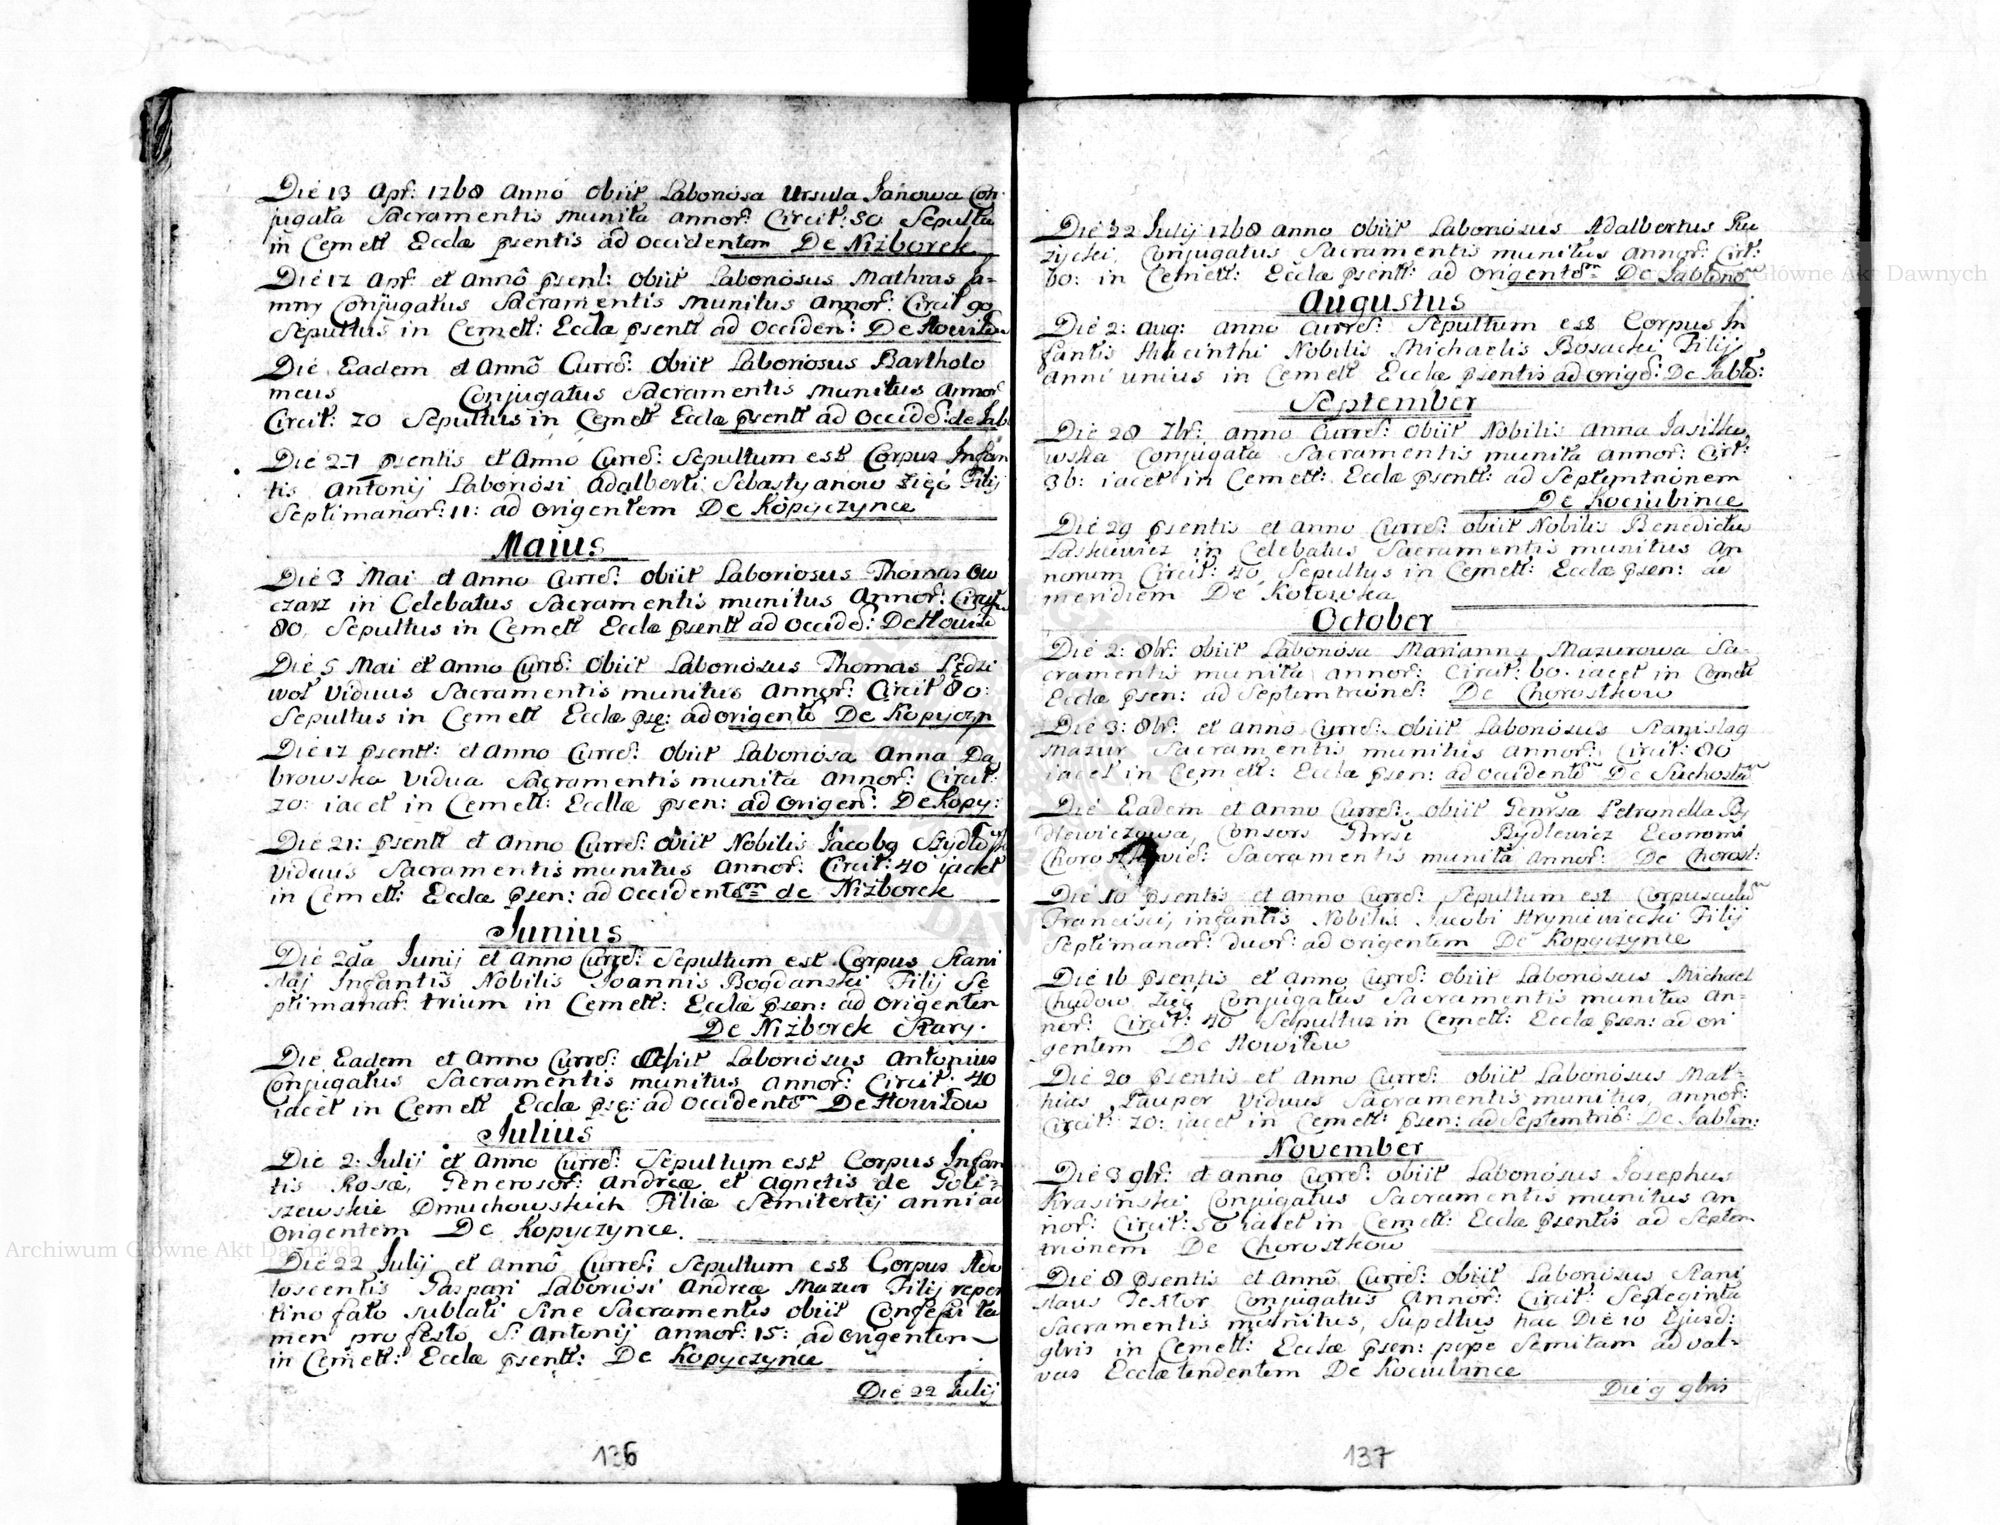 Die 13 Apr: 1768 Anno Obiit Laboriosa Ursula Janowa Con
jugata Sacramentis munita annor: Circit: 50 Sepulta
in Cemett Eccłæ psentis ad Occidentem De Niżborek
Die 17 Apr: et Annô psent: Obiit Laboriosus Mathias Ja-
mny Conjugatus Sacramentis munitus Annor: Circit 90
Sepultus in Cemett: Eccłæ psentt ad Occiden: De Howiłow
Die Eadem et Annô Curre: Obiit Laboriosus Bartholo
meus Conjugatus Sacramentis munitus Annor
Circit: 70 Sepultus in Cemett Eccłæ psentt ad Occide: de Jabł
Die 27 psentis et Anno Curre: Sepultum est Corpus Infan
tis Antonij Laboriosi Adalberti Sebastyanow Zięć Filij
Septimanar: 11: ad Origentem De Kopyczynce
Maius
Die 3 Mai et Anno Curre: Obiit Laboriosus Thomas Ow
czarz in Celebatus Sacramentis munitus Annor: Circit
80, Sepultus in Cemett Eccłæ psentt ad Occide: De Howił
Die 5 Mai et Anno Curre: Obiit Laboriosus Thomas Lędzi
woł Viduus Sacramentis munitus Annor: Circit 80:
Sepultus in Cemett Eccłæ pse: ad origente De Kopyczyn
Die 17 psentt: et Anno Curre: Obiit Laboriosa Anna Da
browska Vidua Sacramentis munita Annor: Circit:
70: iacet in Cemett: Eccłæ psen: ad Origen: De Kopy:
Die 21: psentt et Anno Curre: Obiit Nobilis Jacobg Szydło
Viduus Sacramentis munitus Annor: Circit: 40 iacet
in Cemett: Eccłæ psen: ad Occidentem de Niżborek
Junius
Die 2da Junij et Anno Curre: Sepultum est Corpus Stani
słaj Infantis Nobilis Joannis Bogdanski Filij Se
ptimanar: trium in Cemett: Eccłæ psen: ad Origentem
De Niżborek Stary.
Die Eadem et Anno Curre: Obiit Laboriosus Antonius
Conjugatus Sacramentis munitus Annor: Circit: 40
iacet in Cemett Eccłæ pse: ad Occidentem De Howiłow
Julius
Die 2: Julij et Anno Curre: Sepultum est Corpus Infan
tis Rosæ, Generosor: Andreæ et Agnetis de Goli-
szewskie Dmuchowskich Filiæ Semitertij anni ad
Origentem De Kopyczynce.
Die 22 Julij et Annô Curre: Sepultum est Corpus Ado
loscentis Gaspari Laboriosi Andreæ Mazur Filij repen
tino fato sublati Sine Sacramentis obiit Confessi ta
men pro festo S: Antonij annor: 15: ad Origentem
in Cemett: Eccłæ psentt: De Kopyczynce
Die 22 Julij
136
Die 32 Julij 1768 Anno obiit Laboriosus Adalbertus Ru
życki, Conjugatus Sacramentis munitus Annor: Cirt:
60: in Cemett: Eccłæ psentt: ad Origentem De Jabłonow
Augustus
Die 2: Aug: Anno Curre: Sepultum est Corpus In
fantis Hiacinthi Nobilis Michaelis Bosacki Filij
anni unius in Cemett Eccłæ psentis ad orige: De Jabło:
September
Die 28 7br: Anno Curre: Obiit Nobilis Anna Jasitko
wska Conjugata Sacramentis munita annor: Cirt:
36: iacet in Cemett: Eccłæ psentt: ad Septemtrionem
De Kociubince
Die 29 psentis et Anno Curre: obiit Nobilis Benedictus
Laskiewicz in Celebatus Sacramentis munitus An
norum Circit: 40, Sepultus in Cemett: Eccłæ psen: ad
meridiem De Kotowka
October
Die 2: 8br: obiit Laboriosa Marianna Mazurowa Sa-
cramentis munita annor: Circit: 60. iacet in Cemett
Eccłæ psen: ad Septemtrione: De Chorostkow
Die 3: 8br: et Anno Curre: obiit Laboriosus Stanislag
Mazur Sacramentis munitus Annor: Circit: 80
iacet in Cemett: Eccłæ psen: ad Occidente De Suchostaw
Die Eadem et Anno Curre: obiit Genrsa Petronella By
dlewiczowa, Consors Gnrsi Bydlewicz Economi
Chorostkowie: Sacramentis munita Annor: De Chorost:
Die 10 psentis et Anno Curre: Sepultum est Corpusculum
Francisci, infantis Nobilis Jacobi Hryniewiecki Filij
Septimanor: duor: ad Origentem De Kopyczynce
Die 16 psentis et Anno Curre: obiit Laboriosus Michael
Chudow Zięć Conjugatus Sacramentis munitus An-
nor: Circit: 40 Sepultus in Cemett: Eccłæ psen: ad ori
gentem De Howiłow
Die 20 psentis et Anno Curre: obiit Laboriosus Mat-
hias Pauper Viduus Sacramentis munitus, annor:
Circit: 70: iacet in Cemett: psen: ad Septemtrio: De Jabłon:
November
Die 3 9br: et Anno Curre: obiit Laboriosus Josephus
Krasinski Conjugatus Sacramentis munitus An
nor: Circit: 50 iacet in Cemett: Eccłæ psentis ad Septem
trionem De Chorostkow
Die 8 psentis et Annô Curre: obiit Laboriosus Stani
slaus Textor Conjugatus Annor: Circit: Septeginta
Sacramentis munitus, Supeltus hac Die 10 Ejusd:
9bris in Cemett: Eccłæ psen: prpe Semitam ad val-
vas Eccłæ tendentem De Kociubince
Die 9 9bris
137
Archiwum Główne Akt Dawnych
Archiwum Główne Akt Dawnych